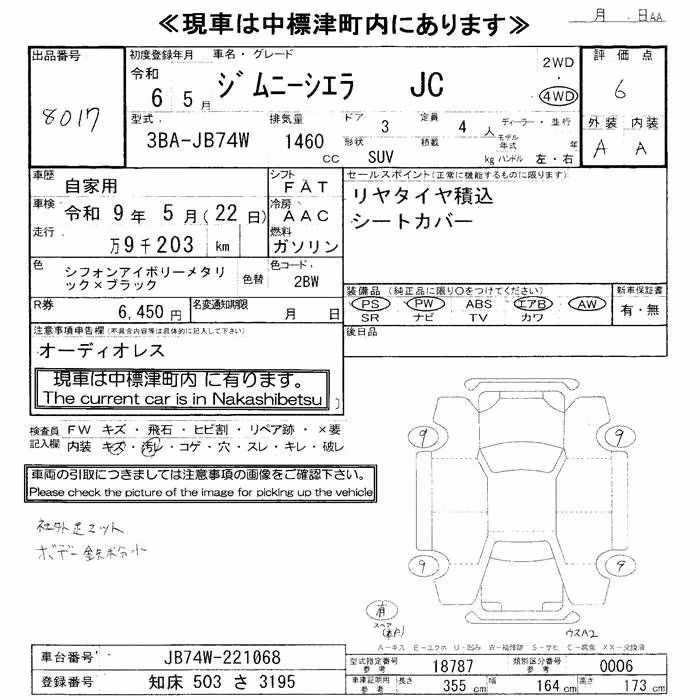 ≪現車は中標津町内にあります≫
月 日AA
出品番号
8017
初度登録年月 車名・グレード
令和
6 5月
ジムニーシエラ JC
2WD
4WD
評価点
6
型式
3BA-JB74W
排気量
1460
cc
ドア 3
形状
SUV
定員 4 人
積載
kg
ディーラー・並行
モデル年式 年
ハンドル 左・右
外装 内装
A A
車歴
自家用
シフト
FAT
車検
令和 9年 5月(22日)
冷房
AAC
走行
万9千203 km
燃料
ガソリン
色
シフォンアイボリーメタリ
ック×ブラック
色替
色コード.
2BW
R券
6,450円
名変通知期限
月 日
セールスポイント(正常に機能するものに限ります)
リヤタイヤ積込
シートカバー
装備品 (純正品に限り○をつけてください)
PS PW ABS エアB AW
SR ナビ TV カワ
新車保証書
有・無
後日品
注意事項申告欄(不具合内容等は具体的に記入して下さい)
オーディオレス
現車は中標津町内に有ります。
The current car is in Nakashibetsu
検査員
記入欄
FW キズ・飛石・ヒビ割・リペア跡・×要
内装 キズ・汚レ・コゲ・穴・スレ・キレ・破レ
車両の引取につきましては注意事項の画像をご確認下さい。
Please check the picture of the image for picking up the vehicle
社外足マット
ボデー鉄ポン小
9 9
9 9
有
スペア
ウスA2
A-キズ E-エクボ U-凹み W-補修跡 S-サビ C-腐食 XX-交換済
車台番号
JB74W-221068
登録番号
知床 503 さ 3195
型式指定番号
参考
18787
類別区分番号
参考
0006
車庫証明用
参考
長さ
355 cm
幅
164 cm
高さ
173 cm